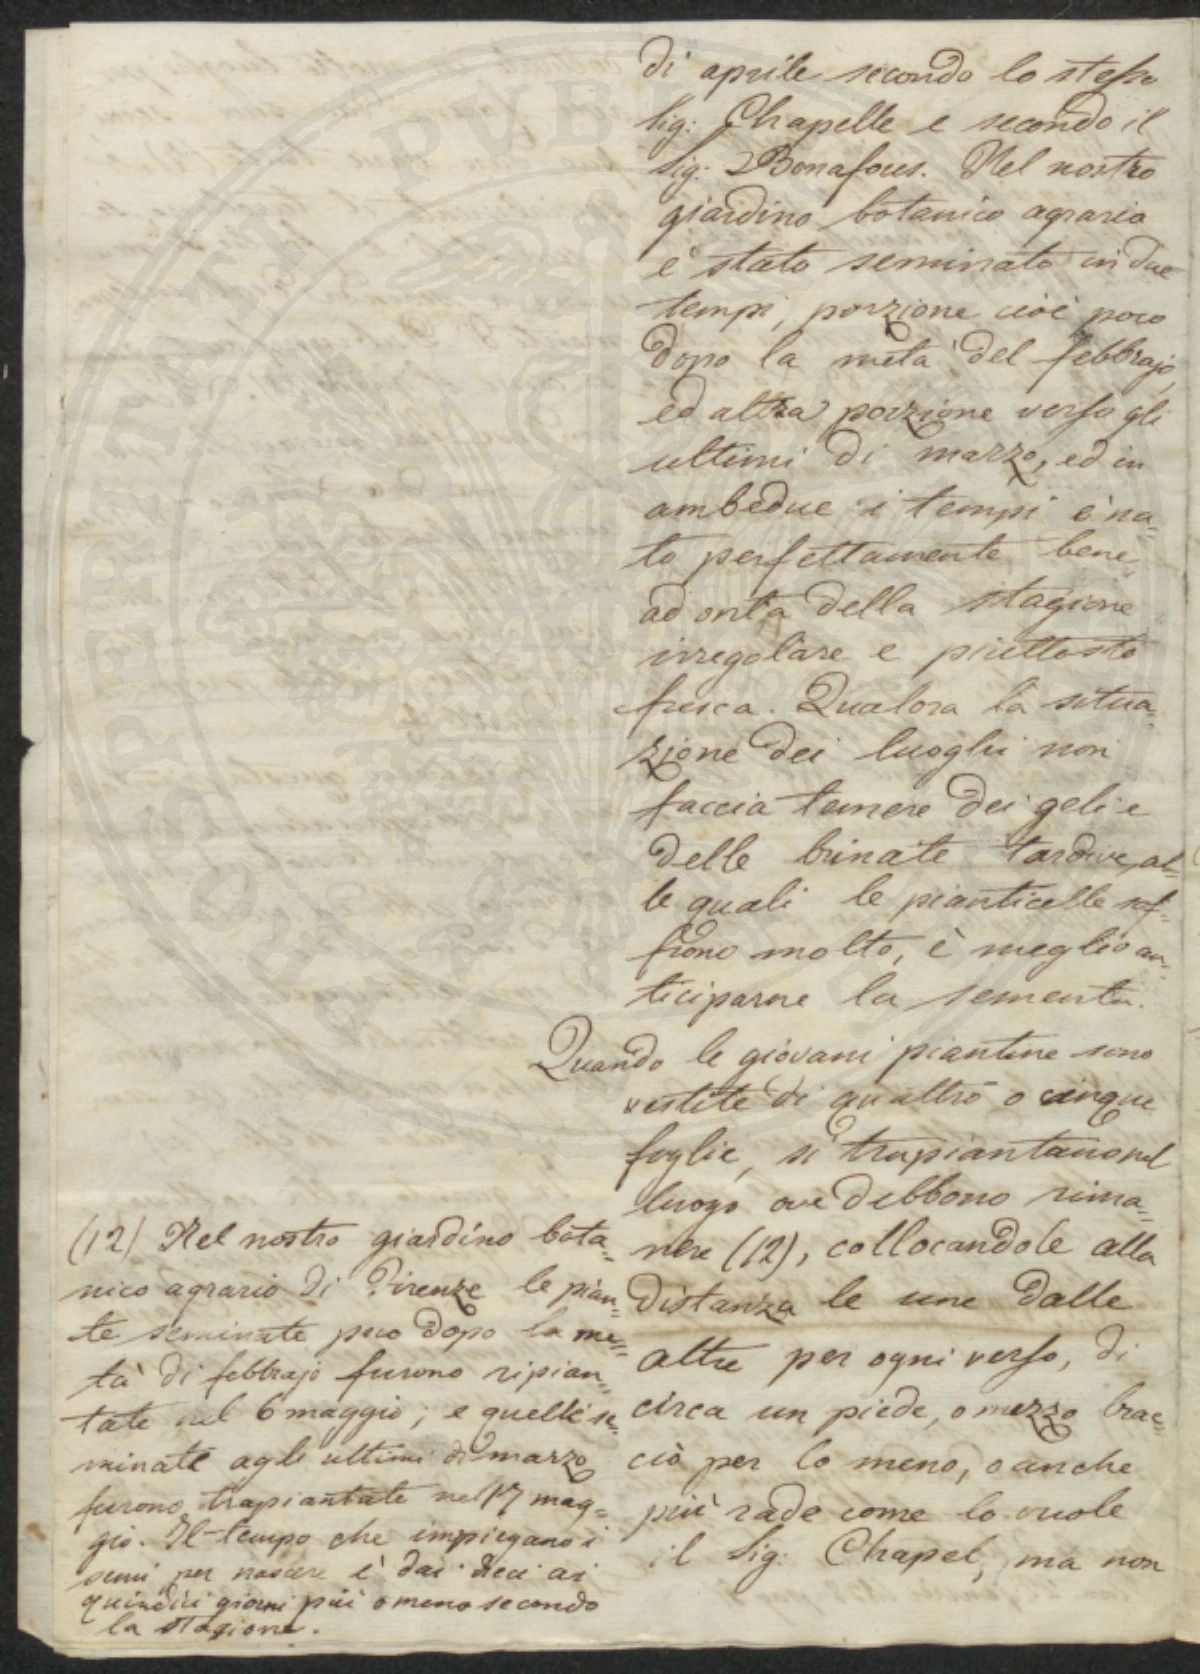 di aprile secondo lo stesso
Sig: Chapelle e secondo il
Sig: Bonafous. Nel nostro
giardino botanico agrario
è stato seminato in due
tempi, porzione cioè poco
dopo la metà del febbrajo,
ed altra porzione verso gli
ultimi di marzo, ed in
ambedue i tempi è na=
to perfettamente bene
ad onta della stagione
irregolare e piuttosto
fresca. Qualora la situa=
zione dei luoghi non
faccia temere dei geli e
delle brinate tardive, al=
le quali le pianticelle sof=
frono molto, è meglio an=
ticiparne la sementa.
Quando le giovani piantine sono
vestite di quattro o cinque
foglie, si trapiantano nel
luogo ove debbono rima=
nere (12), collocandole alla
distanza le une dalle
altre per ogni verso, di
circa un piede, o mezzo brac=
cio per lo meno, o anche
più rade come lo vuole
il Sig: Chapel, ma non
(12) Nel nostro giardino bota=
nico agrario di Firenze le pian=
te seminate poco dopo la me=
tà di febbrajo furono ripian=
tate nel 6 maggio; e quelle se=
minate agli ultimi di marzo
furono trapiantate nel 17 mag=
gio. Il tempo che impiegano i
semi per nascere è dai dieci ai
quindici giorni più o meno secondo
la stagione.